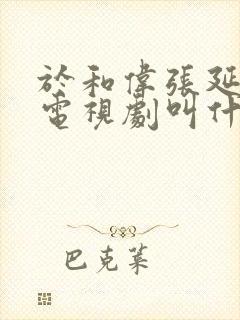 於和偉張延
電視劇叫什
巴克萊